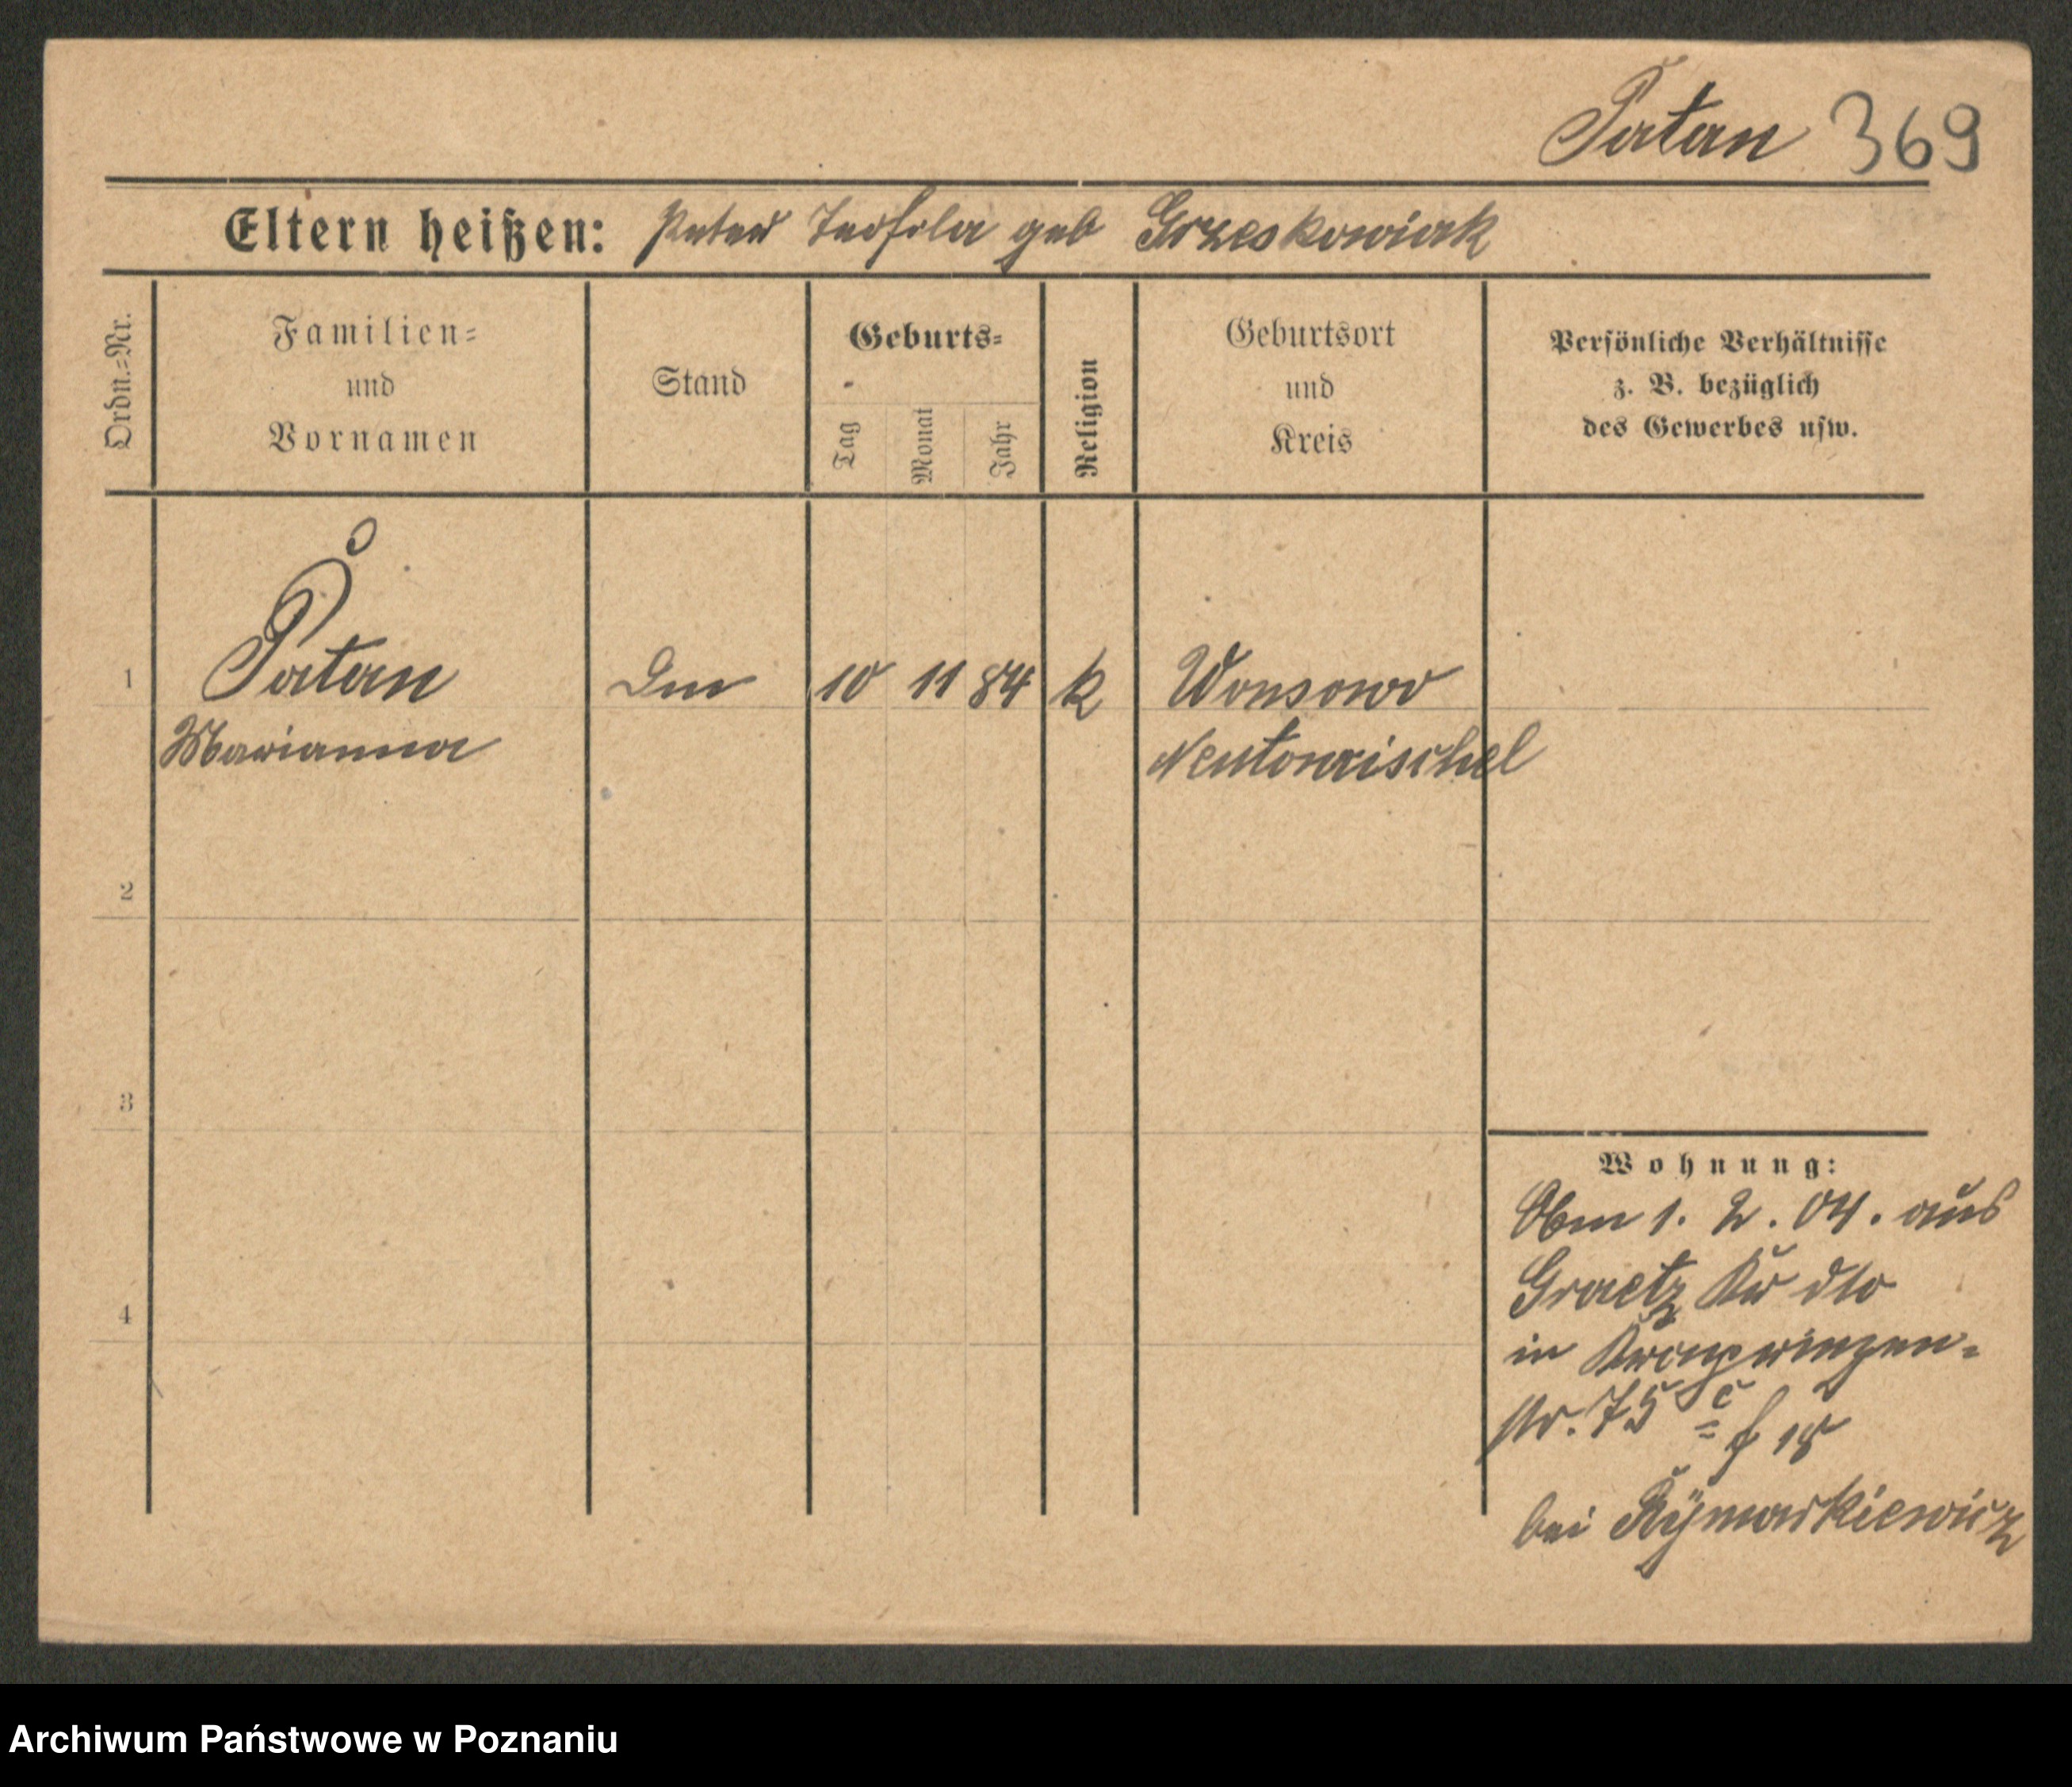 Patan 369
Eltern heißen: Peter Teofila geb Grzeskowiak
Ordn.=Nr.
Familien=
und
Vornamen
Stand
Geburts=
Tag
Monat
Jahr
Religion
Geburtsort
und
Kreis
Persönliche Verhältnisse
z. B. bezüglich
des Gewerbes usw.
1 Patan 10 11 84 k Wonsowo
Marianna Neutomischel
2
3
4
Wohnung:
1. 2. 04. aus
Graetz Kr dto
in Kronprinzen-
str. 75 c
bei Rÿmarkiewicz
Archiwum Państwowe w Poznaniu